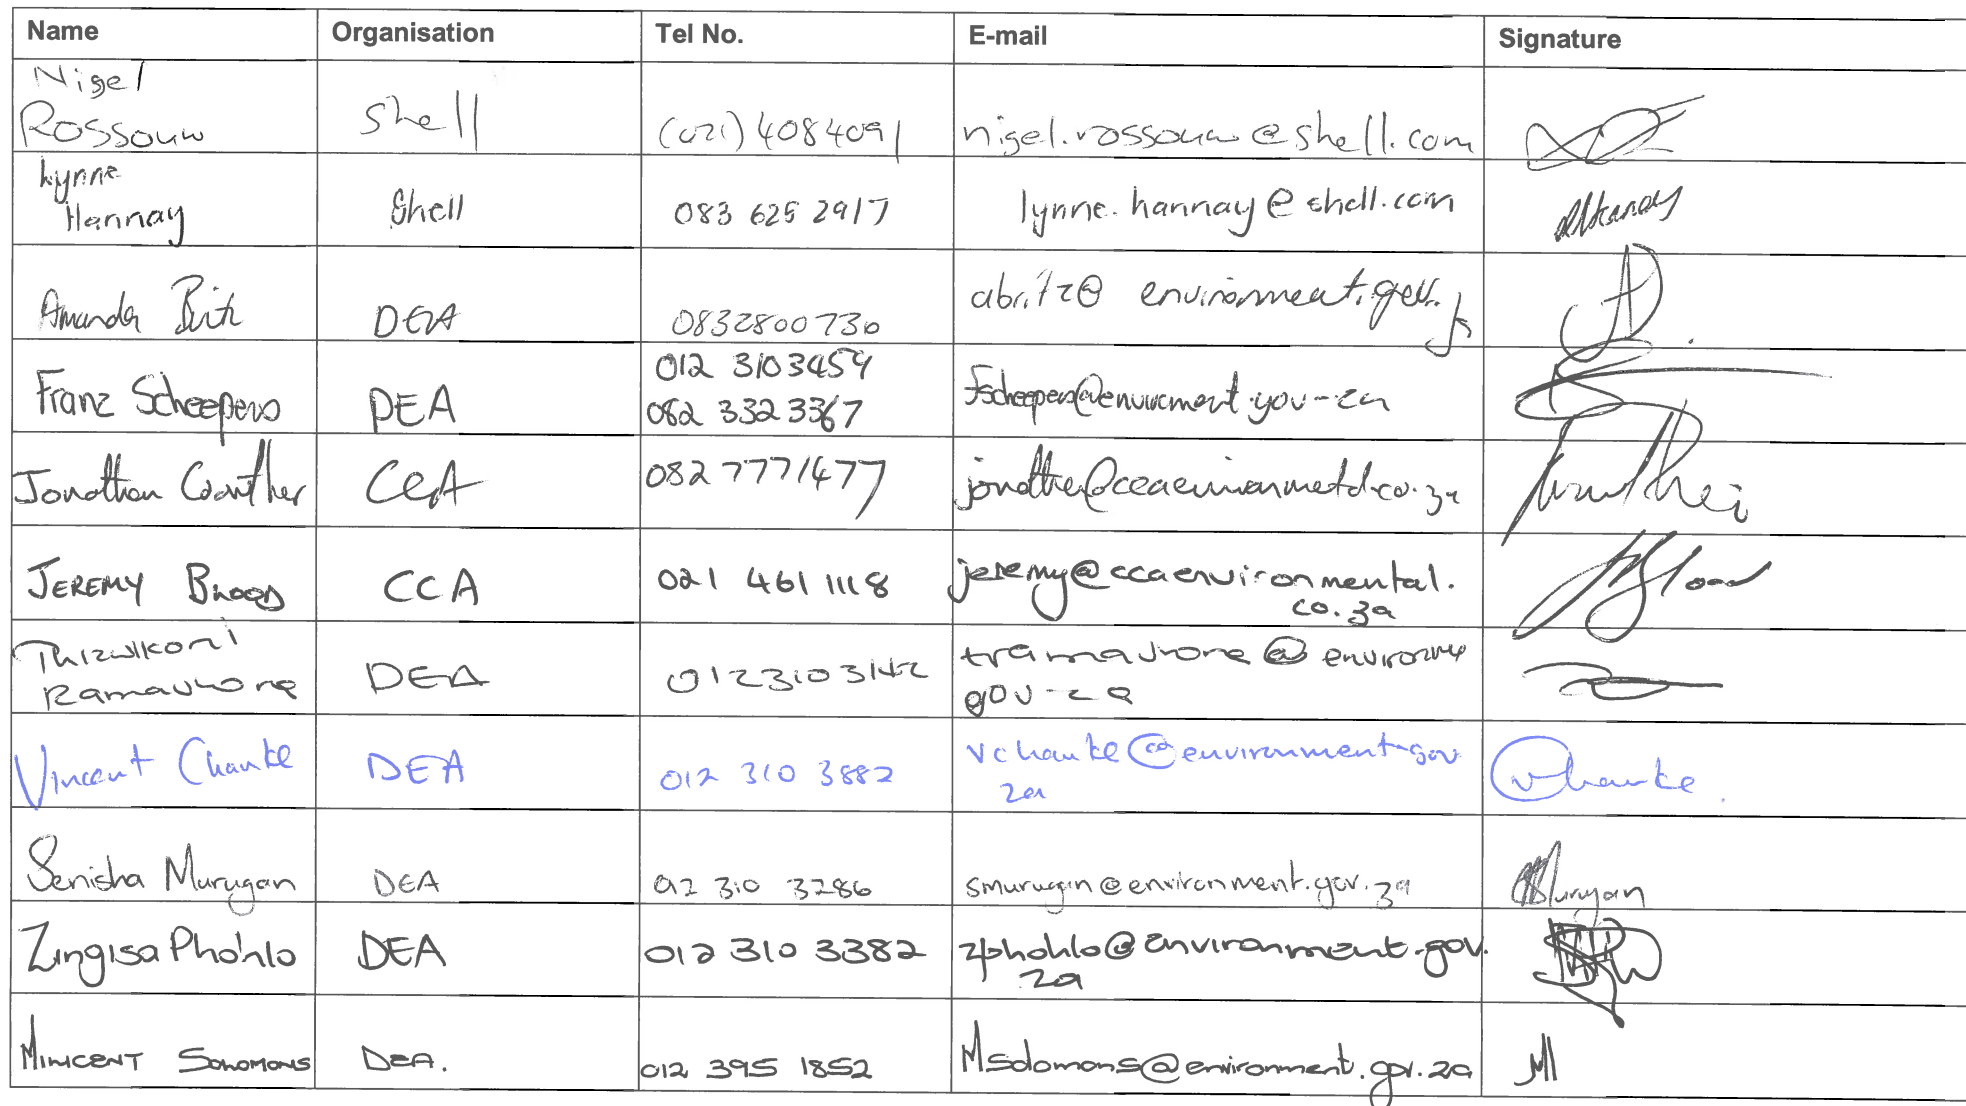 Name Organisation Tel No. E-mail Signature
Nigel
Rossouw Shell (021) 4084091 nigel.rossouw@shell.com
Lynne
Hannay Shell 083 625 2917 lynne.hannay@shell.com
Amanda Britz DEA 0832800730 abritz@environment.gov.
Franz Scheepers DEA 012 3103459
082 332 3367 Fscheepers@environment.gov-za
Jonathan Crowther CCA 082 7771477 jonathan@ccaenvironmental.co.za
JEREMY BLOOD CCA 021 461 1118 jeremy@ccaenvironmental.
co.za
Ramavhona DEA 0123103142 tramavhona@environme
gov-za
Vincent Chauke DEA 012 310 3882 vchauke@environment-gov
za Chauke
Senisha Murugan DEA 012 310 3286 smurugan@environment.gov.za Murugan
Zingisa Phohlo DEA 012 310 3382 zphohlo@environment.gov.
za
MILLICENT SOLOMONS DEA. 012 395 1852 Msolomons@environment.gov.za